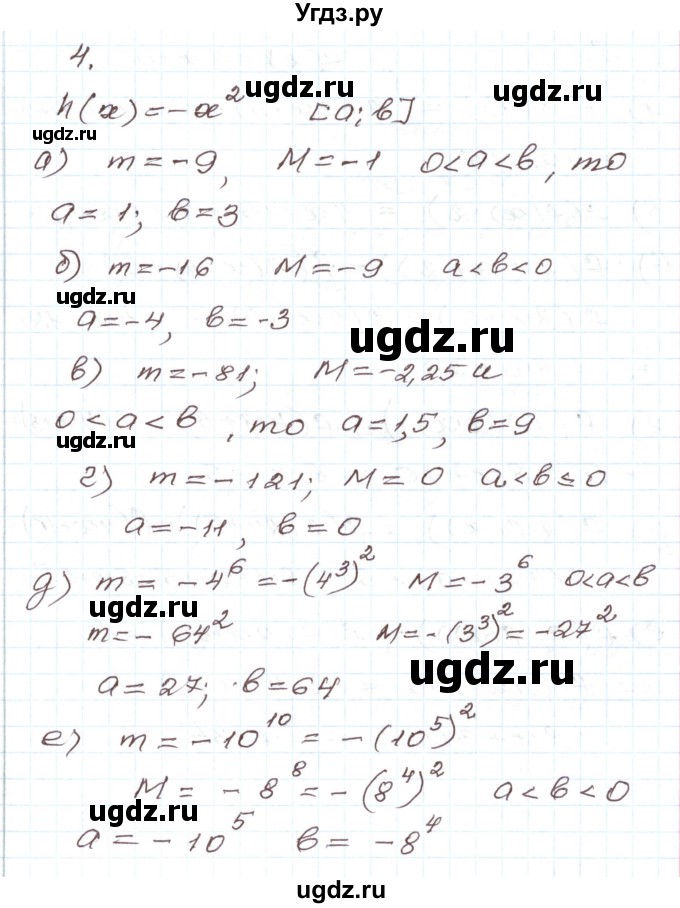 Угдз.ру
4.
h(x)=-x² [a;b]
ugdz.ru
ugdz.ru
ugdz.ru
а) m=-9, M=-1 0<a<b, то
a=1; b=3
б) m=-16 M=-9 a<b<0
ugdz.ru
a=-4, b=-3
ugdz.ru
в) m=-81; M=-2,25 и
0<a<b, то a=1,5, b=9
ugdz.ru
г) m=-121; M=0 a<b≤0
a=-11, b=0
д) m=-4⁶=-(4³)² M=-3⁶ 0<a<b
ugdz.ru
m=-64² M=-(3³)²=-27²
ugdz.ru
a=27; b=64
е) m=-10¹⁰=-(10⁵)²
M=-8⁸=-(8⁴)² a<b<0
ugdz.ru
a=-10⁵ b=-8⁴
ugdz.ru